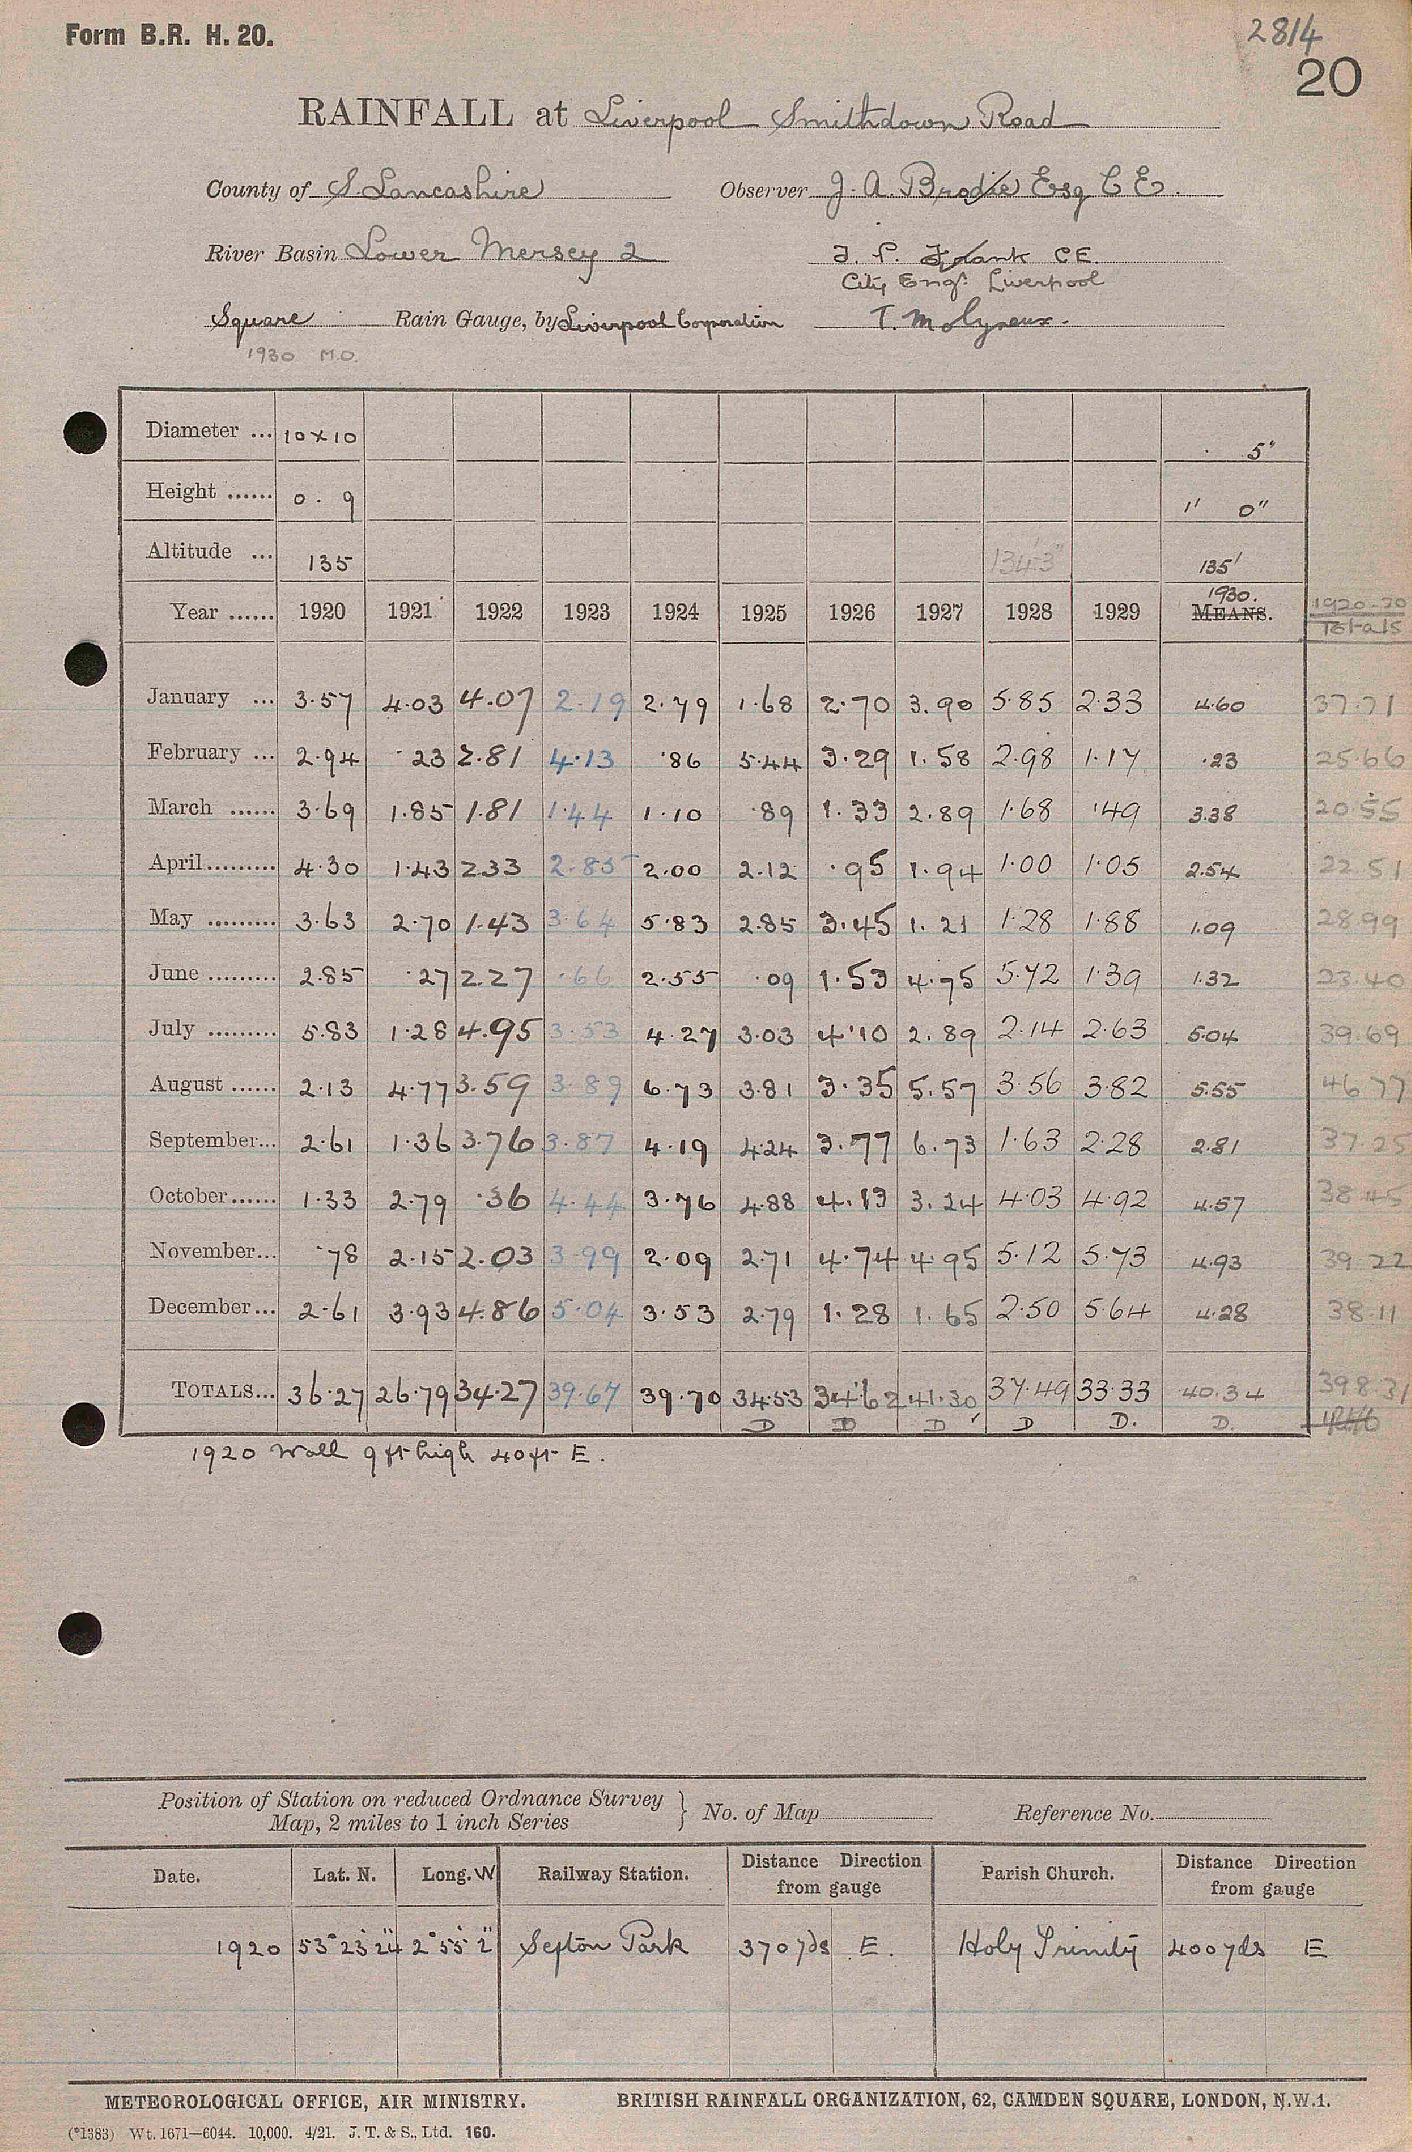 Form B.R. H. 20.
2814
20
RAINFALL at Liverpool Smithdown Road
County of S. Lancashire Observer J. A. Brodie Esq C E.
River Basin Lower Mersey 2 T. P. Frank CE.
City Engr. Liverpool
Square Rain Gauge, by Liverpool Corporation T. Molyneux.
1930 M.O.
Diameter ... 10 x 10 5"
Height ...... 0 . 9 1' 0"
Altitude ... 135 134'3" 135'
Year ...... 1920 1921 1922 1923 1924 1925 1926 1927 1928 1929 1930. MEANS. 1920-30 Totals
January ... 3.57 4.03 4.07 2.19 2.79 1.68 2.70 3.90 5.85 2.33 4.60 37.71
February ... 2.94 .23 2.81 4.13 .86 5.44 3.29 1.58 2.98 1.17 .23 25.66
March ...... 3.69 1.85 1.81 1.44 1.10 .89 1.33 2.89 1.68 .49 3.38 20.55
April......... 4.30 1.43 2.33 2.85 2.00 2.12 .95 1.94 1.00 1.05 2.54 22.51
May ......... 3.63 2.70 1.43 3.64 5.83 2.85 3.45 1.21 1.28 1.88 1.09 28.99
June ......... 2.85 .27 2.27 .66 2.55 .09 1.53 4.75 5.72 1.39 1.32 23.40
July ......... 5.83 1.28 4.95 3.53 4.27 3.03 4.10 2.89 2.14 2.63 5.04 39.69
August ...... 2.13 4.77 3.59 3.89 6.73 3.81 3.35 5.57 3.56 3.82 5.55 46.77
September... 2.61 1.36 3.76 3.87 4.19 4.24 3.77 6.73 1.63 2.28 2.81 37.25
October...... 1.33 2.79 .36 4.44 3.76 4.88 4.13 3.24 4.03 4.92 4.57 38.45
November... .78 2.15 2.03 3.99 2.09 2.71 4.74 4.95 5.12 5.73 4.93 39.22
December... 2.61 3.93 4.86 5.04 3.53 2.79 1.28 1.65 2.50 5.64 4.28 38.11
TOTALS... 36.27 26.79 34.27 39.67 39.70 34.53 34.62 41.30 37.49 33.33 40.34 398.31
D D D D D. D.
1920 Wall 9 ft high 40 ft E.
Position of Station on reduced Ordnance Survey Map, 2 miles to 1 inch Series } No. of Map Reference No.
Date. Lat. N. Long. W Railway Station. Distance Direction from gauge Parish Church. Distance Direction from gauge
1920 53° 23' 24" 2° 55' 2" Sefton Park 370 yds E. Holy Trinity 400 yds E
METEOROLOGICAL OFFICE, AIR MINISTRY. BRITISH RAINFALL ORGANIZATION, 62, CAMDEN SQUARE, LONDON, N.W.1.
(*1383) Wt. 1671—6044. 10,000. 4/21. J. T. & S., Ltd. 160.